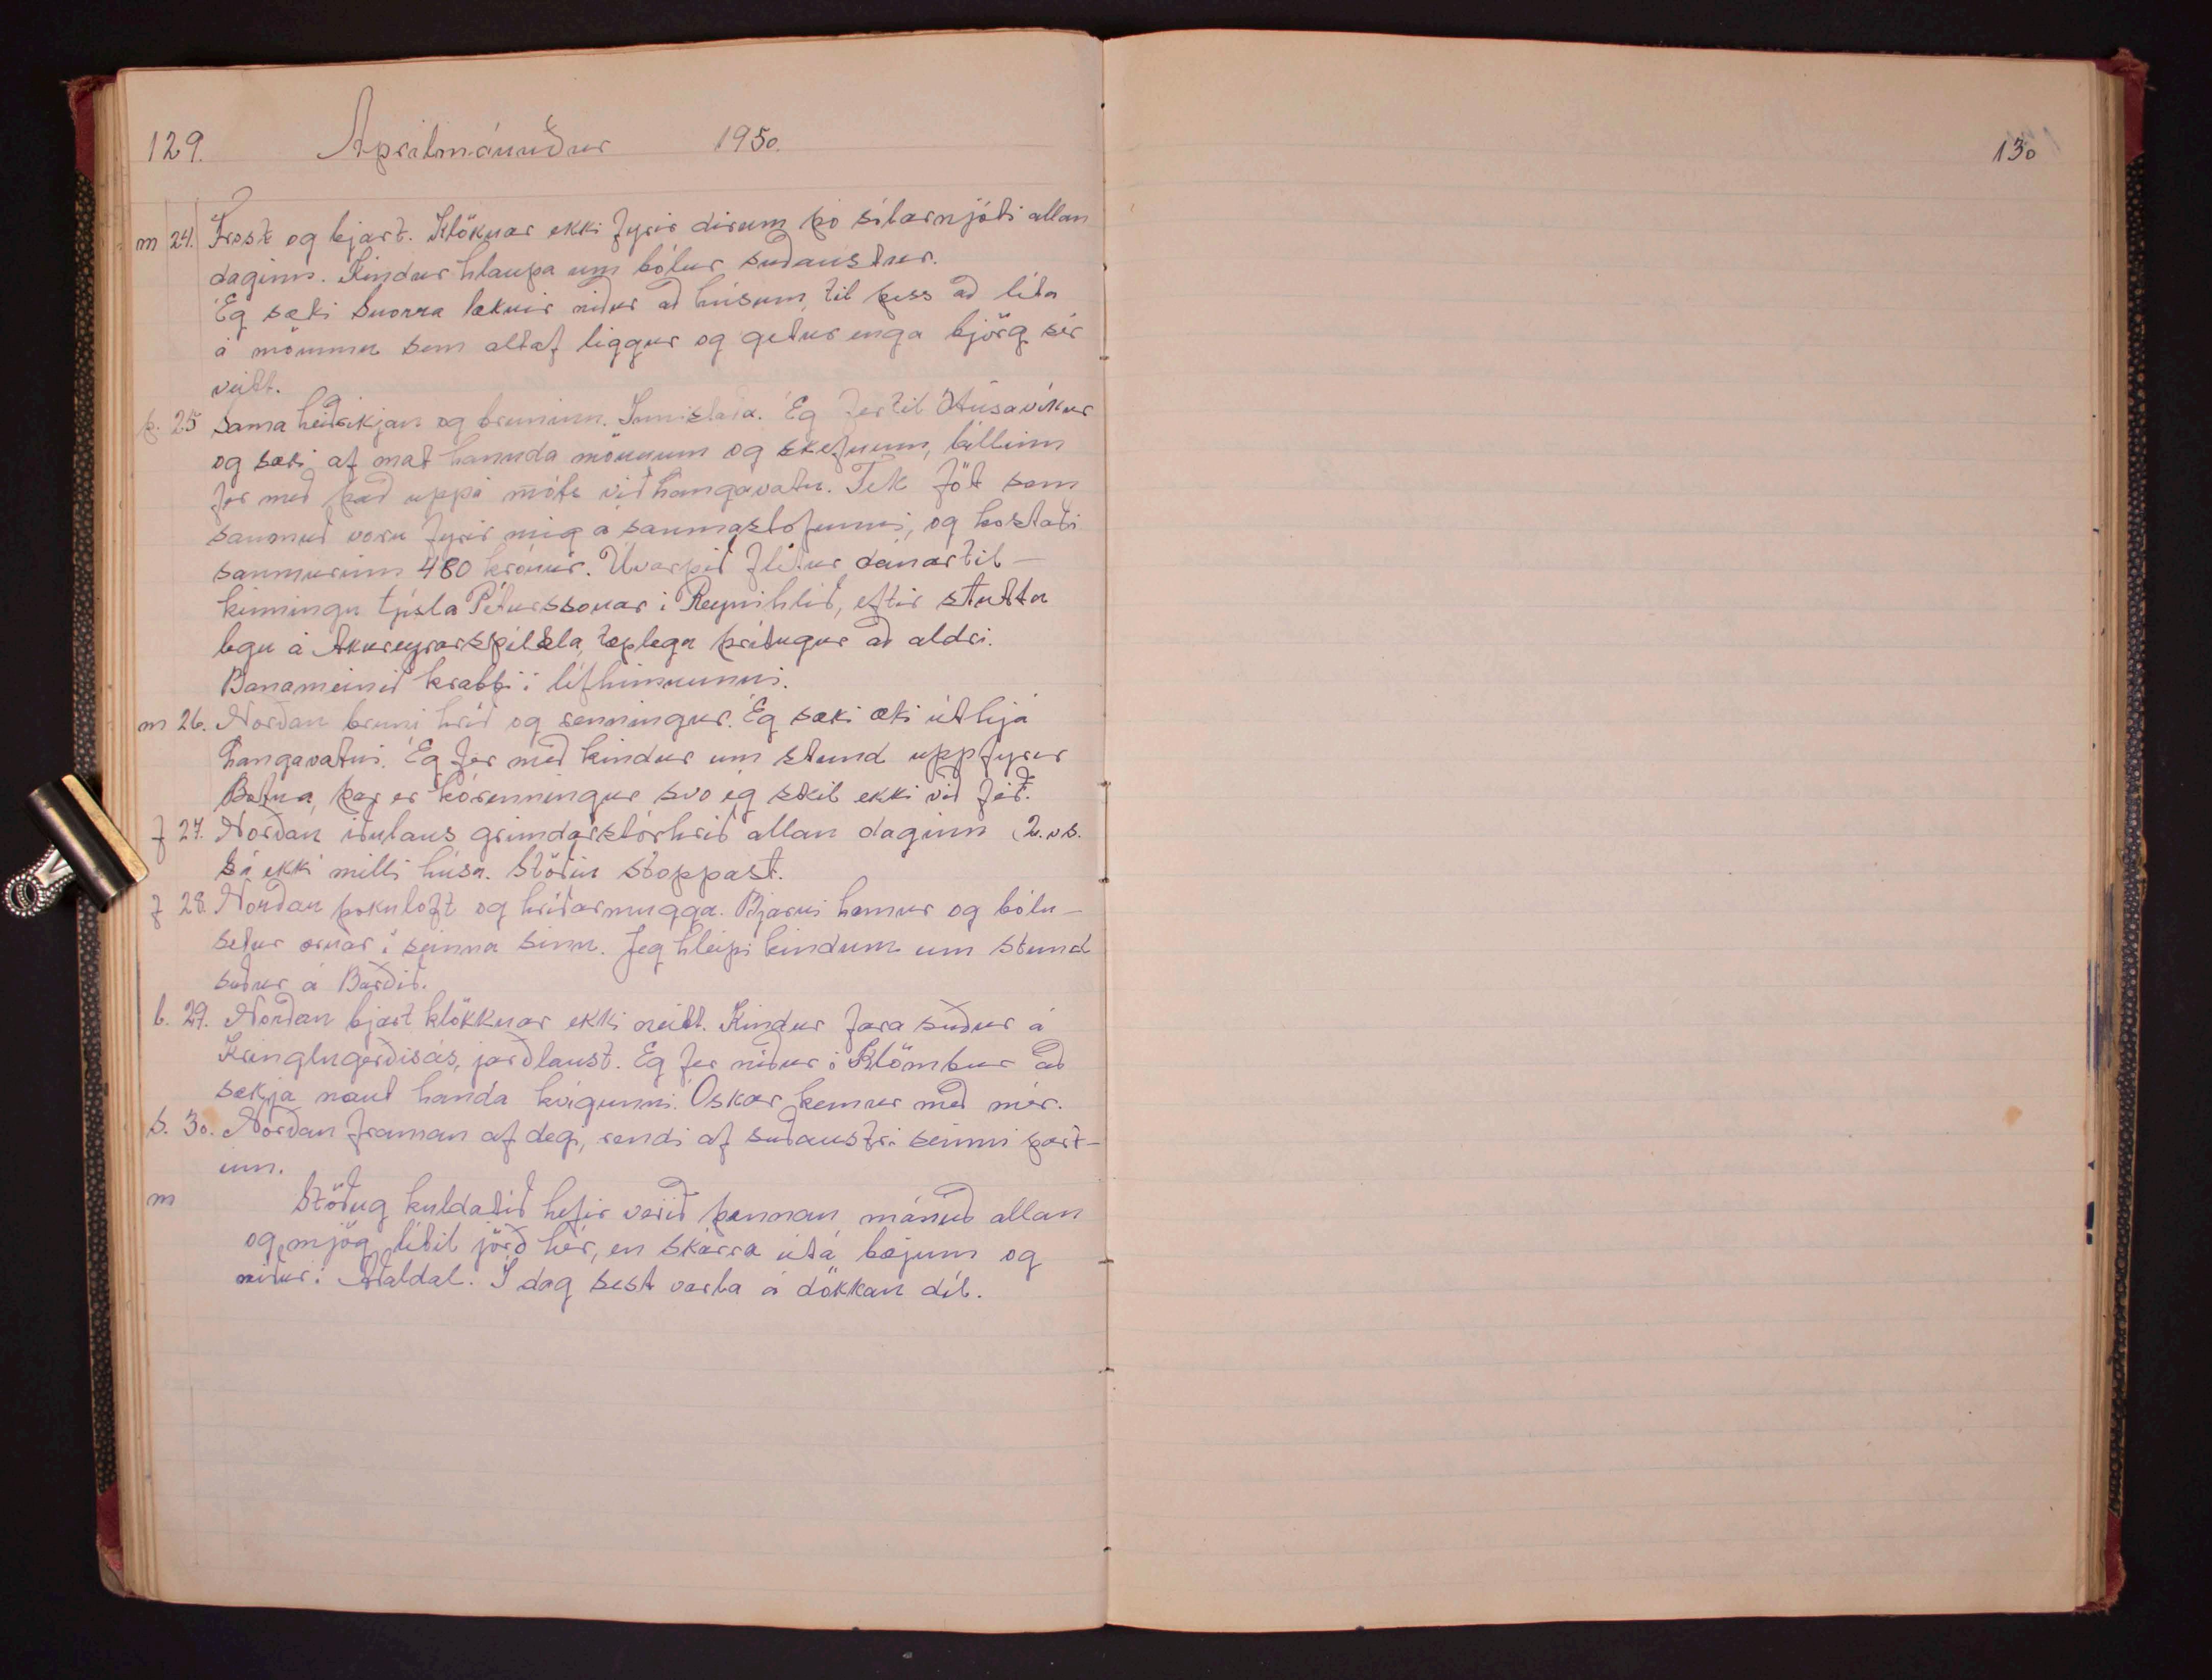 129. Aprílmánuður 1950.
m 24. Frost og bjart. Klöknar ekki fyrir dirum þó sólarnjóti allan
daginn. Kindur hlaupa um bólur suðaustur.
Ég sæki Snorra læknir niður að húsum, til þess að líta
á mömmu sem altaf liggur og getur enga björg sér
veitt.
þ. 25 Sama heiðríkjan og bruninn. Innistaða. Ég fer til Húsavíkur
og sæki af mat handa mönnum og skepnum, bíllinn
fer með það uppá móts við Langavatn. Tek föt sem
saumuð voru fyrir mig á saumastofunni, og kostaði
saumurinn 480 krónur. Úvarpið flitur dánartil-
kinningu Gísla Péturssonar í Reynihlíð, eftir stutta
legu á Akureyrarspítala, tæplega þrítugur að aldri.
Banameinið krabbi í lífhimnunni.
m 26. Norðan bruni hríð og renningur. Ég sæki æki út hjá
Langavatni. Ég fer með kindur um stund uppfyrir
Botna, þar er kórenningur svo ég skil ekki við féð.
f 27. Norðan iðulaus grimdarstórhríð allan daginn 2. vs.
Sá ekki milli húsa. Stöðin stoppast.
f 28. Norðan þokuloft og hríðarmugga. Bjarni kemur og bólu-
setur ærnar í seinna sinn. Jeg hleipi kindum um stund
suður á Barðið.
l. 29. Norðan bjart klökknar ekki neitt. Kindur fara suður á
Kringlugerðisás, jarðlaust. Ég fer niður í Klömbur að
sækja naut handa kvígunni. Óskar kemur með mér.
s. 30. Norðan framan af degi, rendi af suðaustri seinni part-
inn.
m Stöðug kuldatíð hefir verið þennan mánuð allan
og mjög lítil jörð hér, en skárra útá bæjum og
niður í Aðaldal. Í dag sést varla á dökkan díl.
130